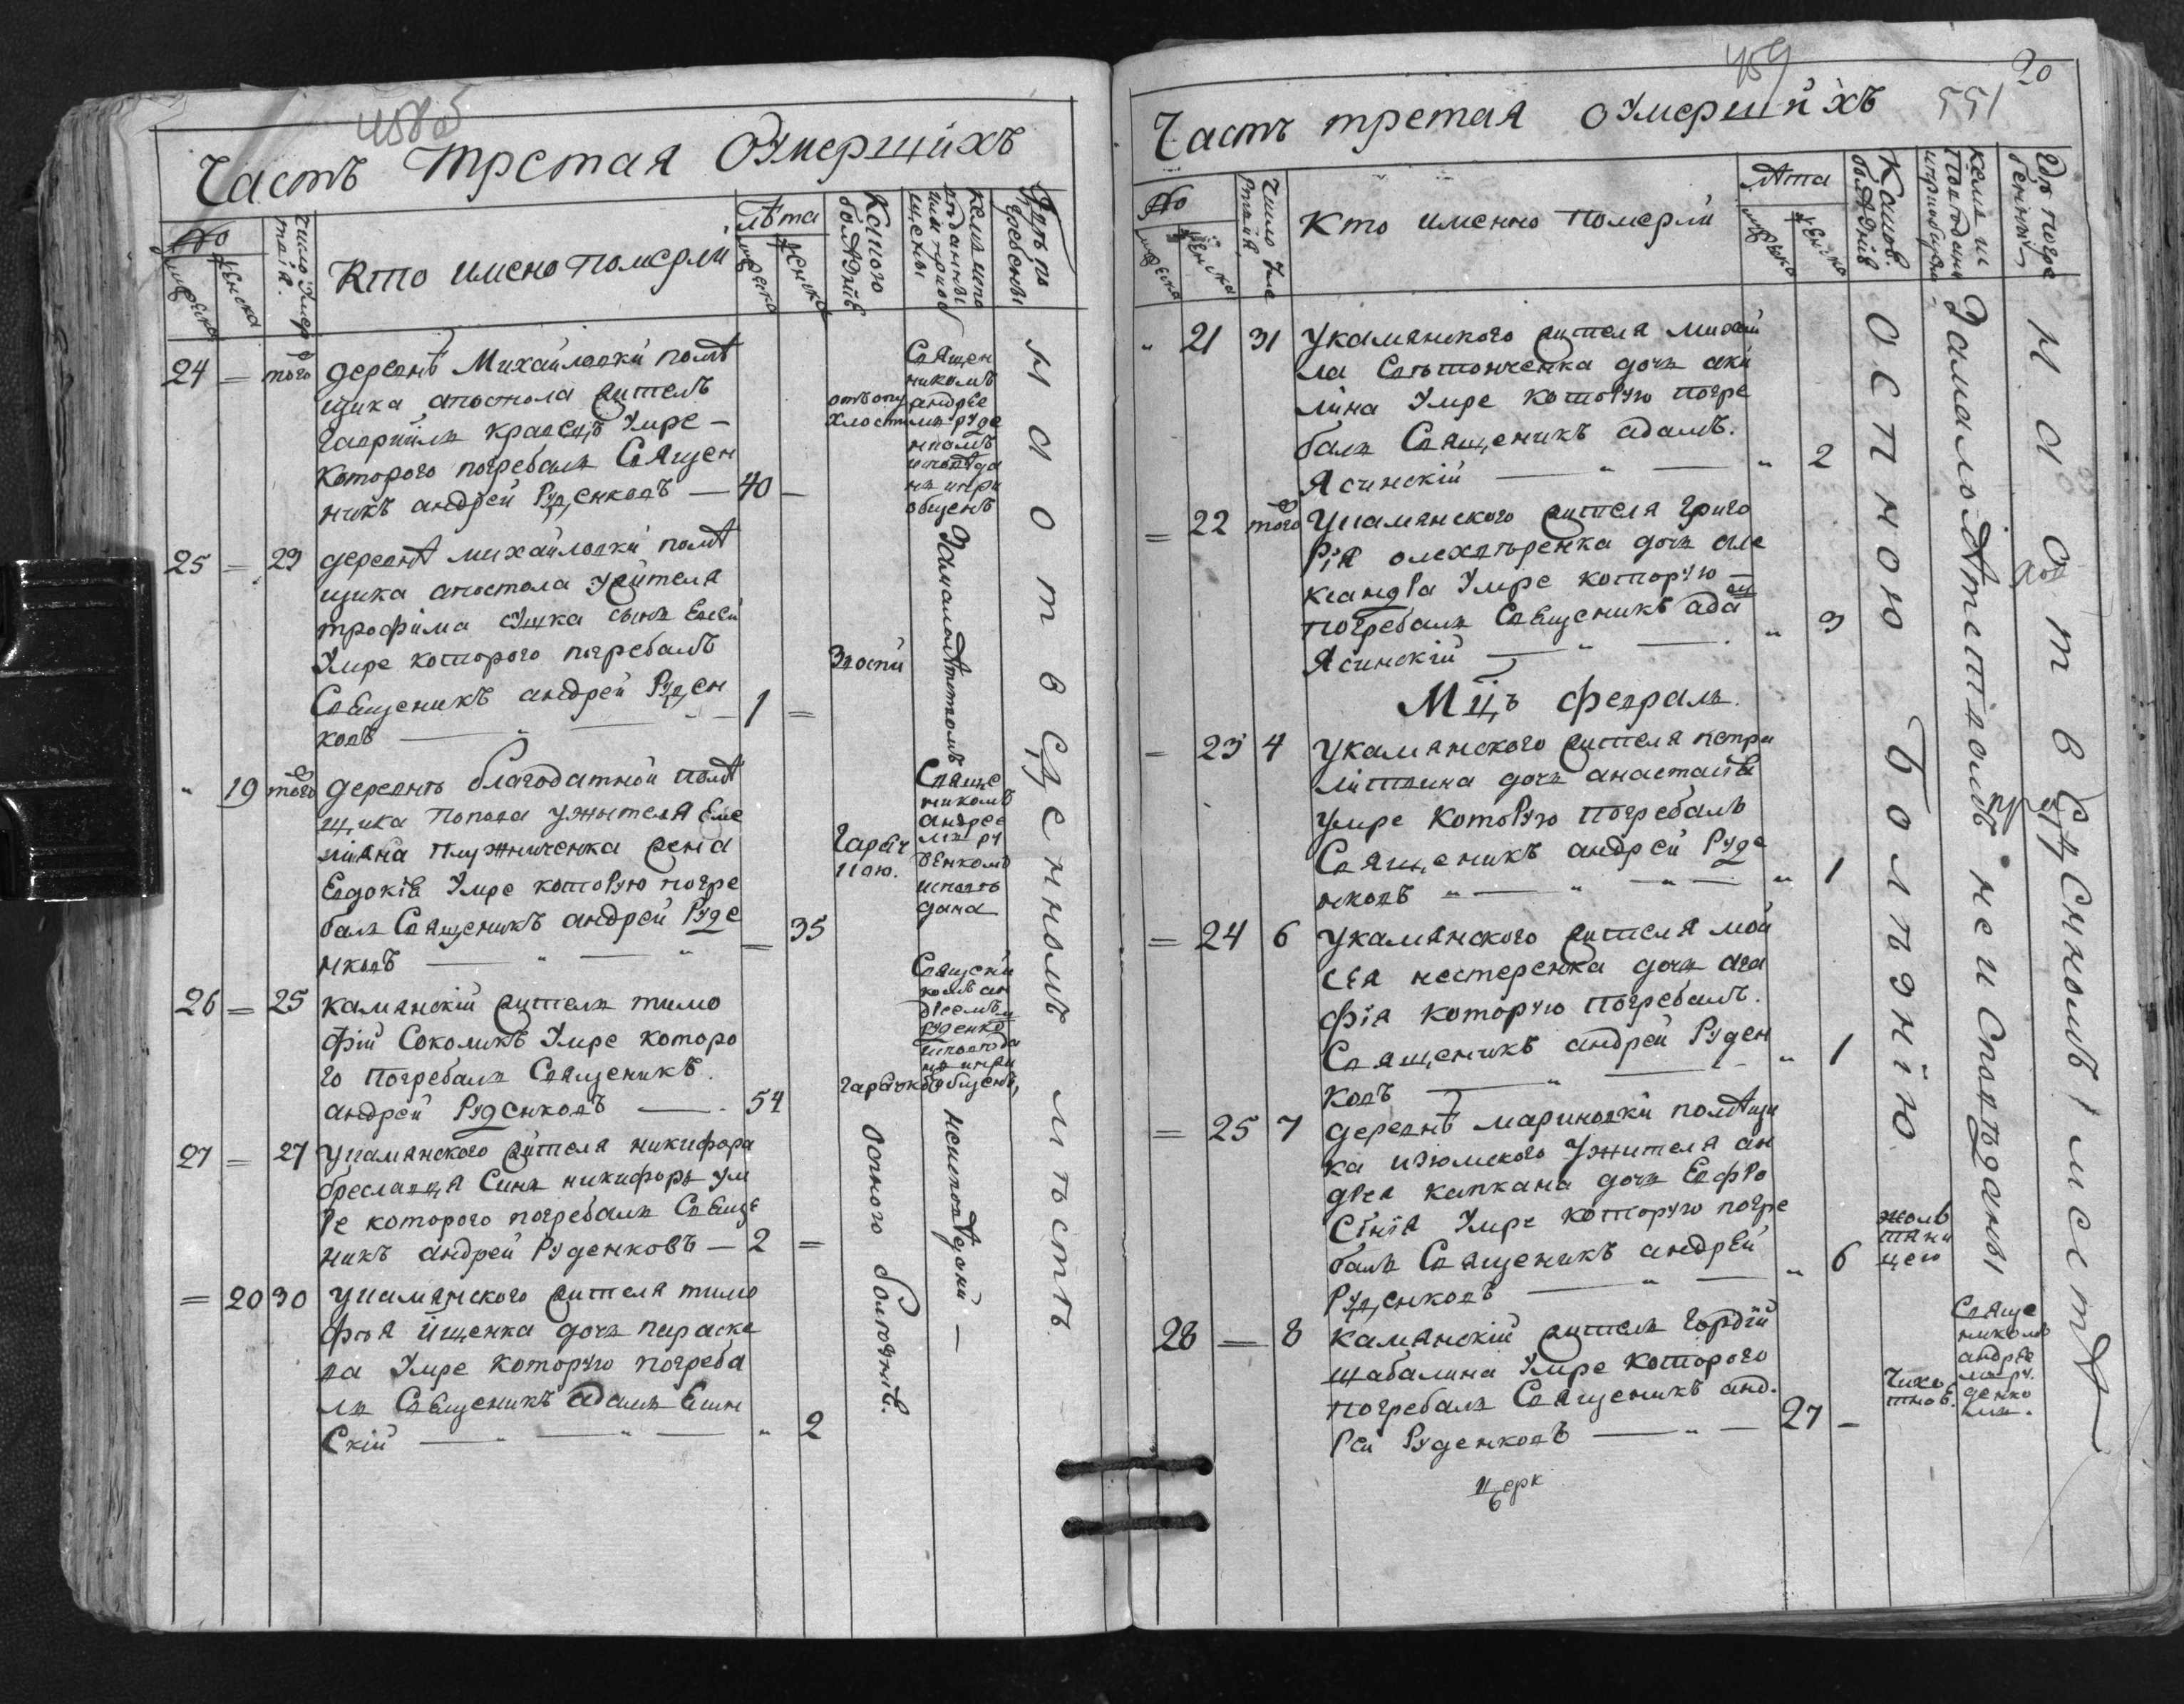 Часть Третая Оумершихъ
№
мужеска
женска
Число умертвія.
Кто имено померли
лѣта
мужеска
женска
Какою болѣзнію
24 = того деревнѣ Михайловки помѣ
щика апостола житель
Гавріилъ кравецъ умре —
которого погребалъ Священ
никъ андрей Руденковъ — 40 —
отъ опу
хлости
Священ
никомъ
андрее
мъ руде
нкомъ
исповѣда
нъ и прі
общенъ
25 = 29 деревнѣ михайловки помѣ
щика апостола жителя
трофима сынъ
умре которого погребалъ
Священикъ андрей Руден
ковъ — 1 =
Замалолѣтством
„ 19 того деревнѣ благодатной помѣ
щика попова жителя Еме
ліяна плужниченка жена
Евдокіа умре которую погре
балъ Священикъ андрей Руде
нковъ — = 35
Горяч
кою.
Свяще
никомъ
андрее
мъ ру
денкомъ
исповѣ
дана
26 = 25 каманскій житель тимо
фій Соколикъ умре которо
го погребалъ Священикъ.
андрей Руденковъ — 54
горячко
Священи
комъ ан
дреемъ
руденко
исповѣда
нъ и прі
общенъ,
27 = 27 укаманского жителя никифора
бреславца Синъ никифоръ ум
ре которого погребалъ Свяще
никъ андрей Руденковъ — 2 =
= 20 30 укаманского жителя тимо
фѣя Йщенка дочь параске
ва умре которую погреба
лъ Священикъ адамъ Ясин
скій — „ 2
оспного болѣзнѣ.
неисповѣданы —
На отведенномъ мѣстѣ
459
551
20
Часть третая оумершихъ
№
мужеска
женска
Число уме
ртвія
Кто именно померли
лѣта
мужеска
женска
Какою.
болѣзнію
Где погре
бенны
„ 21 31 Укаманского жителя михай
ла дочь аки
лина умре которую погре
балъ Священикъ адамъ.
Ясинскій — „ 2
= 22 того Укаманского жителя Григо
рія олехвѣренка дочь але
ксандра умре которую —
погребалъ Священикъ адам
Ясинскій — „ 3
Мцъ февраль.
= 23 4 Укаманского жителя петра
литвина дочь анастасія
умре которую погребалъ
Священикъ андрей Руде
нковъ „ — „ 1
= 24 6 Укаманского жителя мой
сея нестеренка дочь ага
фія которую погребалъ.
Священикъ андрей Руден
ковъ — „ 1
= 25 7 деревнѣ мариновки помѣщи
ка изюмского жителя ан
дрея капкана дочь Евфро
синія умре которую погре
балъ Священикъ андрей
Руденковъ — „ 6
жолв
тяни
цею
28 = 8 каманскій житель Гордій
шабалина умре которого
погребалъ Священикъ анд.
рей Руденковъ — „ — 27 —
Свяще
никомъ
андрее
мъ ру.
денко
мъ.
Оспною Болѣзнію
Замалолѣтством неисповѣданы
На отведенномъ мѣстѣ